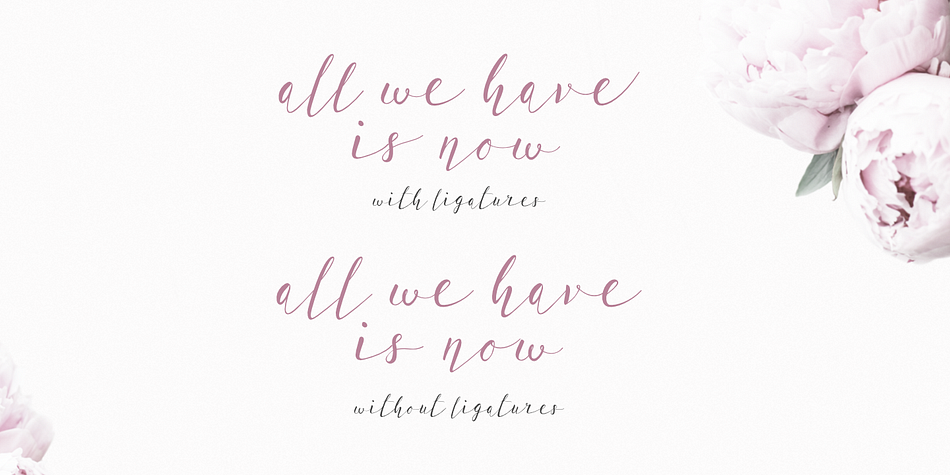 all we have
is now
with ligatures
all we have
is now
without ligatures